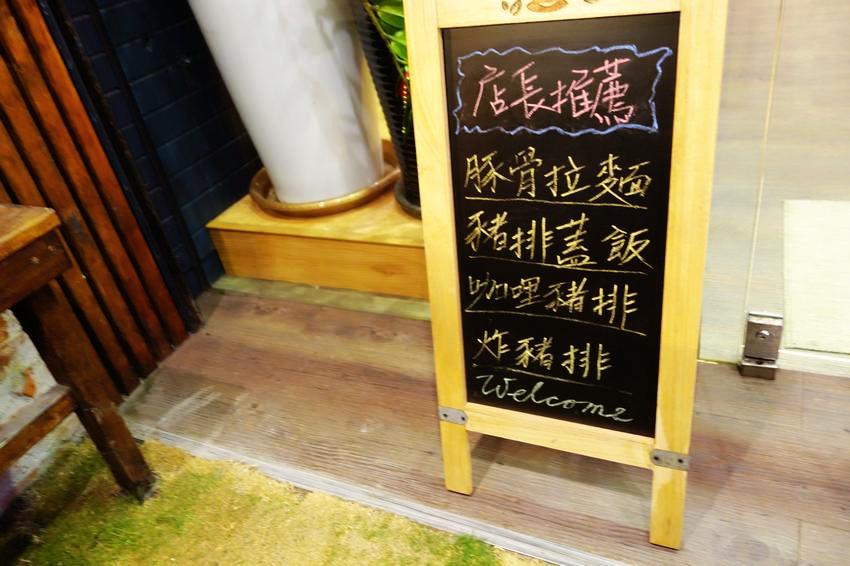 店長推薦
豚骨拉麵
豬排蓋飯
咖哩豬排
炸豬排
Welcome